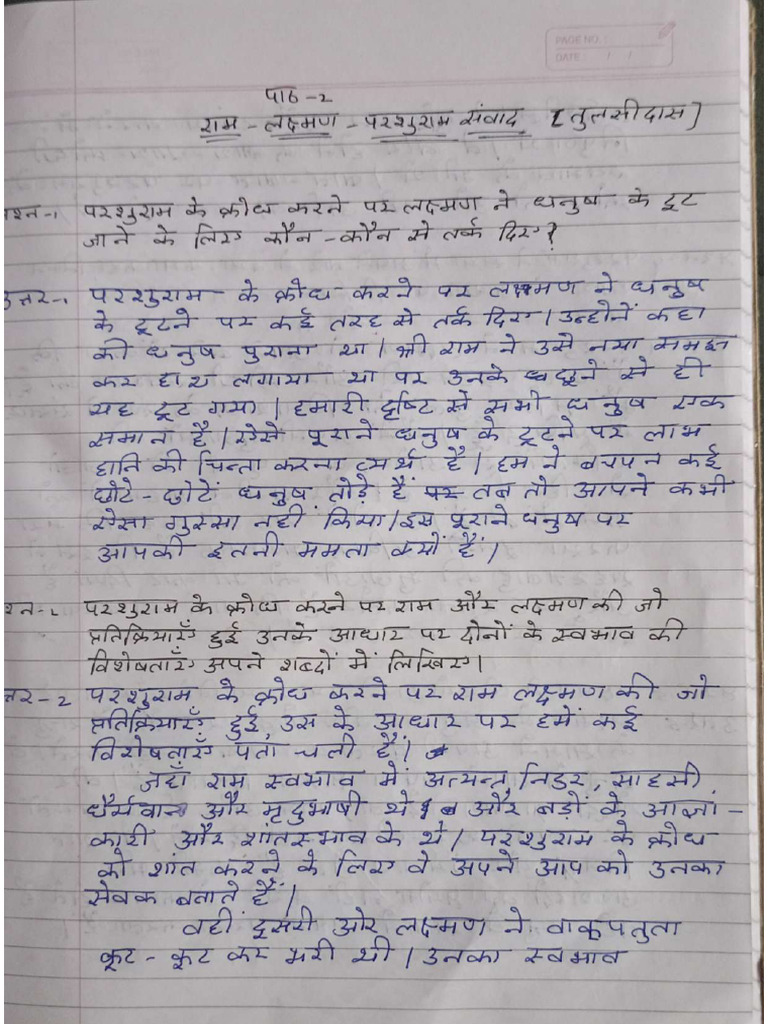 PAGE NO.:
DATE: / /
पाठ-2
राम - लक्ष्मण - परशुराम संवाद [तुलसीदास]
श्न-1 परशुराम के क्रोध करने पर लक्ष्मण ने धनुष के टूट
जाने के लिए कौन-कौन से तर्क दिए?
उत्तर-1 परशुराम के क्रोध करने पर लक्ष्मण ने धनुष
के टूटने पर कई तरह से तर्क दिए। उन्होनें कहा
की धनुष पुराना था। श्री राम ने उसे नया समझ
कर हाथ लगाया था पर उनके छूने से ही
यह टूट गया। हमारी दृष्टि से सभी धनुष एक
समान है। ऐसे पूराने धनुष के टूटने पर लाभ
हानि की चिन्ता करना व्यर्थ है। हम ने बचपन कई
छोटे-छोटें धनुष तोड़े हैं पर तब तो आपने कभी
ऐसा गुस्सा नही किया। इस पूराने धनुष पर
आपकी इतनी ममता क्यों हैं।
श्न-2 परशुराम के क्रोध करने पर राम और लक्ष्मण की जो
प्रतिक्रियाएँ हुई उनके आधार पर दोनों के स्वभाव की
विशेषताएँ अपने शब्दों में लिखिए।
त्तर-2 परशुराम के क्रोध करने पर राम लक्ष्मण की जो
प्रतिक्रियाएँ हुई, उस के आधार पर हमें कई
विशेषताएँ पता चली हैं।
जहाँ राम स्वभाव में अत्यन्त निडर, साहसी
धैर्यवान और मृदुभाषी थे और बड़ों के आज्ञा-
कारी और शांतस्भाव के थे। परशुराम के क्रोध
को शांत करने के लिए वे अपने आप को उनका
सेवक बताते हैं।
वहीं दूसरी ओर लक्ष्मण ने वाकूपतुता
कूट-कूट कर भरी थी। उनका स्वभाव